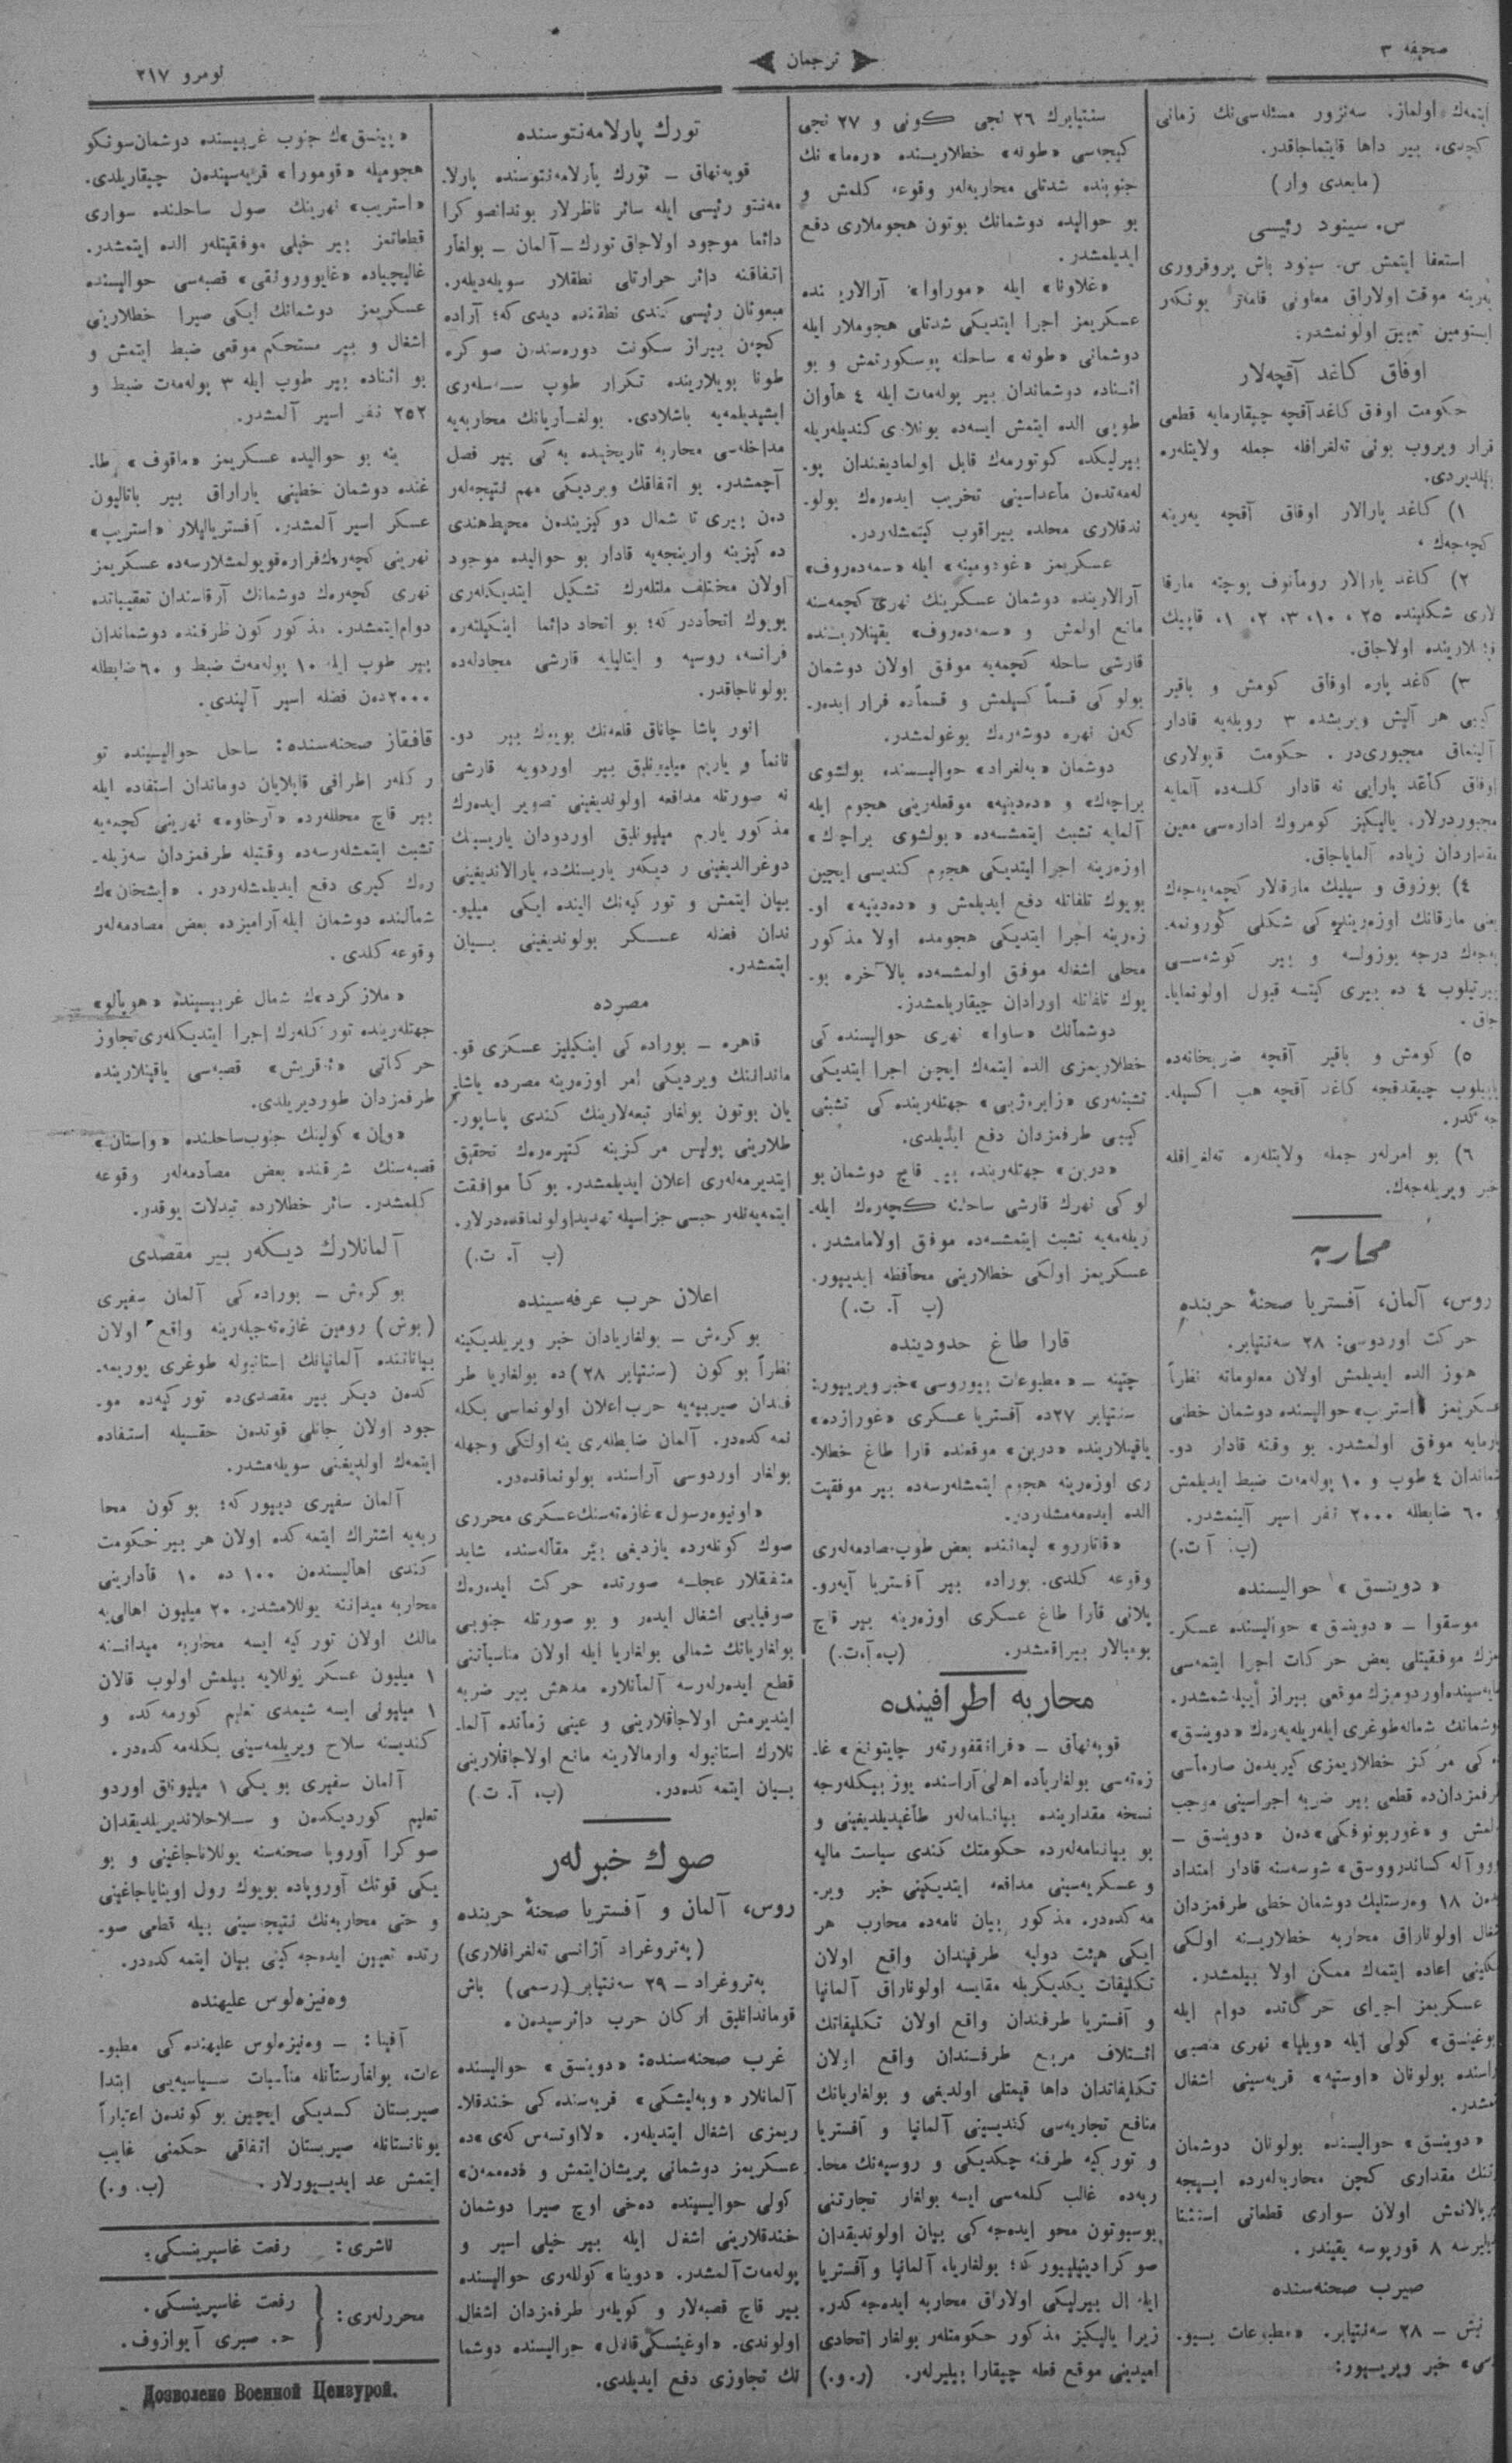 صحیفه ٣
ترجمان
نومرو ٢١٧
ایتمەك اولماز. سەنزور مسئلەسی‌نك زمانی
كچدی، بیر داها قایتماجاقدر.
(مابعدی وار)
س. سینود رئیسی
استعفا ایتمش س. سینود باش پروقوروری
یەرینە موقت اولاراق معاونی
تعیین اولونمشدر.
اوفاق كاغد آقچەلار
حكومت اوفق كاغد آقچە چیقارمایە قطعی
قرار ویروب بونی تەلغرافلە جملە ولایتلەرە
بیلدیردی.
١) كاغد پارالار اوفاق آقچە یەرینە
كچەجەك.
٢) كاغد پارالار رومانوف پوچتە مارقا
لاری شكلیندە ٢٥، ١٠، ٣، ٢، ١، قاپیك
اولاجاق.
٣) كاغد پارە اوفاق كومش و باقیر
كیبی هر آلیش ویریشدە ٣ روبلەیە قادار
آلینماق مجبوری‌در. حكومت قبولاری
اوفاق كاغد پارایی نە قادار كلسەدە آلمایە
مجبوردرلار. یالیكیز كومروك ادارەسی معین
مقداردان زیادە آلمایاجاق.
٤) بوزوق و سیلیك مارقالار كچمەیەجەك
یعنی مارقانك اوزەریندە كی شكلی كورونمە-
یەجەك درجە بوزولسە و بیر كوشەسی
ییرتیلوب ٤ دە بیری كیتسە قبول اولونمایا-
جاق.
٥) كومش و باقیر آقچە ضربخانەدە
یاپیلوب چیقدقچە كاغد آقچە هب اكسیلە-
جەكدر.
٦) بو امرلەر جملە ولایتلەرە تەلغرافلە
خبر ویریلەجەك.
محاربە
روس، آلمان، آفستریا صحنۀ حربندە
حركت اوردوسی: ٢٨ سەنتیابر.
هنوز الدە ایدیلمش اولان معلوماتە نظراً
عسكریمز «استریب» حوالیسندە دوشمان خطنی
یارمایە موفق اولمشدر. بو وقتە قادار دو-
شماندان ٤ طوب و ١٠ پولەمەت ضبط ایدیلمش
و ٦٠ ضابطلە ٢٠٠٠ نفر اسیر آلینمشدر.
(پ. آ. ت.)
«دوینسق» حوالیسندە
موسقوا – «دوینسق» حوالیسندە عسكر-
مزك موفقیتلی بعض حركات اجرا ایتمەسی
سایەسیندە اوردومزك موقعی بیراز
دوشمانك شمالە طوغری ایلەریلەیەرك «دوینسق»
دە كی مركز خطلاریمزی كیریدن صارماسی
طرفمزدان‌دە قطعی بیر ضربە اجراسینی موجب
اولمش و «غوربونوفكی»دەن «دوینسق –
نووو آلەكساندرووسق» شوسەسنە قادار امتداد
ایدەن ١٨ وەرستلیك دوشمان خطی طرفمزدان
اشغال اولوناراق محاربە خطلارینە اولكی
شكلینی اعادە ایتمەك ممكن اولا بیلمشدر.
عسكریمز اجرای حركاتدە دوام ایلە
«بوغینسق» كولی ایلە «ویلیا» نهری منصبی
آراسندە بولونان «اوستیە» قریەسینی اشغال
ایتمشدر.
«دوینسق» حوالیسندە بولونان دوشمان
مقداری كچن محاربەلەردە ایسیجە
خیریالانمش اولان سواری قطعاتی استثنا
ایدیلیرسە ٨ قورپوسە یقیندر.
صیرب صحنەسندە
نیش – ٢٨ سەنتیابر. «مطبوعات بیو-
روسی» خبر ویریپیور:
سنتیابرك ٢٦ نجی كونی و ٢٧ نجی
كیجەسی «طونە» خطلاریندە «رەما» نك
جنوبندە شدتلی محاربەلەر وقوعە كلمش و
بو حوالیدە دوشمانك بوتون هجوملاری دفع
ایدیلمشدر.
«غلاونا» ایلە «موراوا» آرالاریندە
عسكریمز اجرا ایتدیكی شدتلی هجوملار ایلە
دوشمانی «طونە» ساحلنە پوسكورتمش و بو
اثنادە دوشماندان بیر پولەمەت ایلە ٤ هاوان
طوپی الدە ایتمش ایسەدە بونلاری كندیلەریلە
بیرلیكدە كوتورمەك قابل اولمادیغندان پو-
لەمەتدن ماعداسینی تخریب ایدەرەك بولو-
ندقلاری محلدە بیراقوب كیتمشلەردر.
عسكریمز «غودومینە» ایلە «سمەدەروف»
آرالاریندە دوشمان عسكرینك نهری كچمەسنە
مانع اولمش و «سمەدەروف» یقینلاریندە
قارشی ساحلە كچمەیە موفق اولان دوشمان
بولوكی قسماً كسیلمش و قسماًدە فرار ایدەر-
كەن نهرە دوشەرەك بوغولمشدر.
دوشمان «بەلغراد» حوالیسندە بولشوی
براچەك» و «دەدینیە» موقعلەرینی هجوم ایلە
آلمایە تشبث ایتمشسەدە «بولشوی براچك»
اوزەرینە اجرا ایتدیكی هجوم كندیسی ایچین
بویوك تلفاتلە دفع ایدیلمش و «دەدینیە» او-
زەرینە اجرا ایتدیكی هجومدە اولا مذكور
محلی اشغالە موفق اولمشسەدە بالآخرە بو-
یوك تلفاتلە اورادان چیقاریلمشدر.
دوشمانك «ساوا» نهری حوالیسندە كی
خطلاریمزی الدە ایتمەك ایچین اجرا ایتدیكی
تشبثلەری «زابرەژیی» جهتلەریندە كی تشبثی
كیبی طرفمزدان دفع ایدیلدی.
«درین» جهتلەریندە بیر قاچ دوشمان بو
لوكی نهرك قارشی ساحلنە كچەرەك ایلە-
ریلەمەیە تشبث ایتمشسەدە موفق اولامامشدر.
عسكریمز اولكی خطلارینی محافظە ایدیپور.
(پ. آ. ت.)
قارا طاغ حدودیندە
چتینە – «مطبوعات بیوروسی» خبر ویریپور:
سنتیابر ٢٧دە آفستریا عسكری «غورازدە»
یاقینلاریندە «درین» موقعندە قارا طاغ خطلا-
ری اوزەرینە هجوم ایتمشلەرسەدە بیر موفقیت
الدە ایدەمەمشلەردر.
«قاتاررو» لیمانندە بعض طوب مصادمەلەری
وقوعە كلدی. بورادە بیر آفستریا آیەرو-
پلانی قارا طاغ عسكری اوزەرینە بیر قاچ
بومبالار بیراقمشدر.
(پ. آ. ت.)
محاربە اطرافیندە
قوپەنهاق – «فرانقفورتەر چایتونغ» غا-
زەتەسی بولغاریادە اهلی آراسندە یوز بیكلەرجە
نسخە مقدارندە بیاننامەلەر طاغیدیلدیغینی و
بو بیاننامەلەردە حكومتك كندی سیاست مالیە
و عسكریەسینی مدافعە ایتدیكینی خبر ویر-
مەكدەدر. مذكور بیان نامەدە محارب هر
ایكی هیئت دولیە طرفیندان واقع اولان
تكلیفات یكدیكریلە مقایسە اولوناراق آلمانیا
و آفستریا طرفندان واقع اولان تكلیفاتك
ائتلاف مربع طرفندان واقع اولان
تكلیفاتدان داها قیمتلی اولدیغی و بولغاریانك
منافع تجاریەسی كندیسینی آلمانیا و آفستریا
و توركیە طرفنە چكدیكی و روسیەنك محا-
ربەدە غالب كلمەسی ایسە بولغار تجارتنی
بوسبوتون محو ایدەجەكی بیان اولوندیقدان
صوكرا دینیلیپور كە؛ بولغاریا، آلمانیا و آفستریا
ایلە ال بیرلیكی اولاراق محاربە ایدەجەكدر.
زیرا یالیكیز مذكور حكومتلەر بولغار اتحادی
امیدینی موقع فعلە چیقارا بیلیرلەر. (ر. و.)
تورك پارلامەنتوسندە
قوپەنهاق – تورك پارلامەنتوسندە پارلا-
مەنتو رئیسی ایلە سائر ناظرلار بوندانصوكرا
دائما موجود اولاجاق تورك – آلمان – بولغار
اتفاقنە دائر حرارتلی نطقلار سویلەدیلەر.
مبعوثان رئیسی كندی نطقندە دیدی كە؛ آرادە
كچەن بیراز سكونت دورەسندن صوكرە
طونا بویلاریندە تكرار طوب سسلەری
ایشیدیلمەیە باشلادی. بولغاریانك محاربەیە
مداخلەسی محاربە تاریخیدە یەكی بیر فصل
آچمشدر. بو اتفاقك ویردیكی مهم نتیجەلەر
دەن بیری تا شمال دوكیزیندەن محیط‌هندی
دەكیزینە وارینجەیە قادار بو حوالیدە موجود
اولان مختلف ملتلەرك تشكیل ایتدیكلەری
بویوك اتحاددر كە؛ بو اتحاد دائما اینكیلتەرە
فرانسە، روسیە و ایتالیایە قارشی مجادلەدە
بولوناجاقدر.
انور پاشا چاناق قلعەنك بویوك بیر دو-
ناتما و یاریم میلیونلیق بیر اوردویە قارشی
نە صورتلە مدافعە اولوندیغینی تصویر ایدەرك
مذكور یاریم میلیونلیق اوردودان یاریسینك
دوغرالدیغینی و دیكەر یاریسنك‌دە یارالاندیغینی
بیان ایتمش و توركیەنك الیندە ایكی میلیو-
ندان فضلە عسكر بولوندیغینی بیان
ایتمشدر.
مصردە
قاهرە – بورادە كی اینكیلیز عسكری قو-
ماندانك ویردیكی امر اوزەرینە مصردە یاشا-
یان بوتون بولغار تبعەلارینك كندی پاساپور-
طلارینی پولیس مركزینە كتیرەرەك تحقیق
ایتدیرمەلەری اعلان ایدیلمشدر. بوكا موافقت
ایتمەیەنلەر حبسی جزاسیلە تهدیداولونماقدەدرلار.
(پ. آ. ت.)
اعلان حرب عرفەسیندە
بوكرەش – بولغاریادان خبر ویریلدیكینە
نظراً بو كون (سنتیابر ٢٨)دە بولغاریا طر
فندان صیربیەیە حرب اعلان اولونماسی بكلە
نمەكدەدر. آلمان ضابطلەری ینە اولكی وجهلە
بولغار اوردوسی آراسندە بولونماقدەدر.
«اونیوەرسول» غازەتەسنك عسكری محرری
صوك كونلەردە یازدیغی بیر مقالەسندە شاید
متفقلار عجلە صورتدە حركت ایدەرەك
صوفیایی اشغال ایدەر و بو صورتلە جنوبی
بولغاریانك شمالی بولغاریا ایلە اولان مناسباتنی
قطع ایدەرلەرسە آلمانلارە مدهش بیر ضربە
ایندیرمش اولاجاقلارینی و عینی زماندە آلما-
نلارك استانبولە وارمالارینە مانع اولاجاقلارینی
بیان ایتمەكدەدر.
(پ. آ. ت.)
صوك خبرلەر
روس، آلمان و آفستریا صحنۀ حربندە
(پەتروغراد آژانسی تەلغرافلاری)
پەتروغراد – ٢٩ سەنتیابر (رسمی) باش
قومانداﻧلیق اركان حرب دائرسیدەن.
غرب صحنەسندە: «دوینسق» حوالیسندە
آلمانلار «وبەلیشكی» قریەسندە كی خندقلا-
ریمزی اشغال ایتدیلەر. «لااوتسەس كەی»دە
عسكریمز دوشمانی پریشان‌ایتمش و «دەممەن»
كولی حوالیسیندە دەخی اوچ صیرا دوشمان
خندقلارینی اشغال ایلە بیر خیلی اسیر و
پولەمەت آلمشدر. «دوینا» كوللەری حوالیسندە
بیر قاچ قصبەلار و كویلەر طرفمزدان اشغال
اولوندی. حوالیسندە دوشما
نك تجاوزی دفع ایدیلدی.
«پینسق»ك جنوب غربیسندە دوشمان سونكو
هجومیلە «قومورا» قریەسیندەن چیقاریلدی.
«استریب» نهرینك صول ساحلندە سواری
قطعاتمز بیر خیلی موفقیتلەر الدە ایتمشدر.
غالیچیادە «غایوورونقی» قصبەسی حوالیسندە
عسكریمز دوشمانك ایكی صیرا خطلارینی
اشغال و بیر مستحكم موقعی ضبط ایتمش و
بو اثنادە بیر طوب ایلە ٣ پولەمەت ضبط و
٢٥٢ نفر اسیر آلمشدر.
ینە بو حوالیدە عسكریمز «ماقوف» طا-
غندە دوشمان خطینی یاراراق بیر باتالیون
عسكر اسیر آلمشدر. آفستریالیلار «استریب»
نهرینی كچەرەك فرارە قویولمشلارسەدە عسكریمز
نهری كچەرەك دوشمانك آرقاسندان تعقیباتدە
دوام ایتمشدر. مذكور كون ظرفندە دوشماندان
بیر طوب ایلە ١٠ پولەمەت ضبط و ٦٠ ضابطلە
٢٠٠٠دەن فضلە اسیر آلیندی.
قافقاز صحنەسندە: ساحل حوالیسیندە تو
ركلەر اطرافی قاپلایان دوماندان استفادە ایلە
بیر قاچ محللەردە «آرخاوە» نهرینی كچمەیە
تشبث ایتمشلەرسەدە وقتیلە طرفمزدان سەزیلە-
رەك كیری دفع ایدیلمشلەردر. «ایشخان»ك
شمالندە دوشمان ایلە آرامیزدە بعض مصادمەلەر
وقوعە كلدی.
«ملازكرد»ك شمال غربیسیندە «هوپالو»
جهتلەریندە توركلەرك اجرا ایتدیكلەری تجاوز
حركاتی قصبەسی یاقینلاریندە
طرفمزدان طوردیریلدی.
«وان» كولینك جنوب ساحلندە «واستان»
قصبەسنك شرقندە بعض مصادمەلەر وقوعە
كلمشدر. سائر خطلاردە تبدلات یوقدر.
آلمانلارك دیكەر بیر مقصدی
بوكرەش – بورادە كی آلمان سفیری
(بوش) رومین غازەتەجیلەرینە واقع اولان
بیاناتندە آلمانیانك استانبولە طوغری یوریمە-
كدەن دیكر بیر مقصدی‌دە توركیەدە مو-
جود اولان جانلی قوتدەن حقیلە استفادە
ایتمەك اولدیغنی سویلەمشدر.
آلمان سفیری دیپور كە؛ بو كون محا
ربەیە اشتراك ایتمەكدە اولان هر بیر حكومت
كندی اهالیسندەن ١٠٠ دە ١٠ قادارینی
محاربە میداننە یوللامشدر. ٢٠ میلیون اهالی‌یە
مالك اولان توركیە ایسە محاربە میداننە
١ میلیون عسكر یوللایە بیلمش اولوب قالان
١ میلیونی ایسە شیمدی تعلیم كورمەكدە و
كندیسنە سلاح ویریلمەسینی بكلەمەكدەدر.
آلمان سفیری بو یكی ١ میلیونلق اوردو
تعلیم كوردیكدەن و سلاحلاندیریلدیقدان
صوكرا آوروپا صحنەسنە یوللاناجاغینی و بو
یكی قوتك آوروپادە بویوك رول اوینایاجاغینی
و حتی محاربەنك نتیجەسینی بیلە قطعی صو-
رتدە تعیین ایدەجەكینی بیان ایتمەكدەدر.
وەنیزەلوس علیهندە
آفینا: – وەنیزەلوس علیهندە كی مطبو-
عات، بولغارستانلە مناسبات سیاسیەیی ابتدا
صیربستان كسدیكی ایچین بو كوندەن اعتباراً
یونانستانلە صیربستان اتفاقی حكمنی غایب
ایتمش عد ایدیپورلار. (پ. و.)
ناشری: رفعت غاسپرینسكی.
محررلەری: رفعت غاسپرینسكی.
ح. صبری آیوازوف.
Дозволено Военной Цензурой.